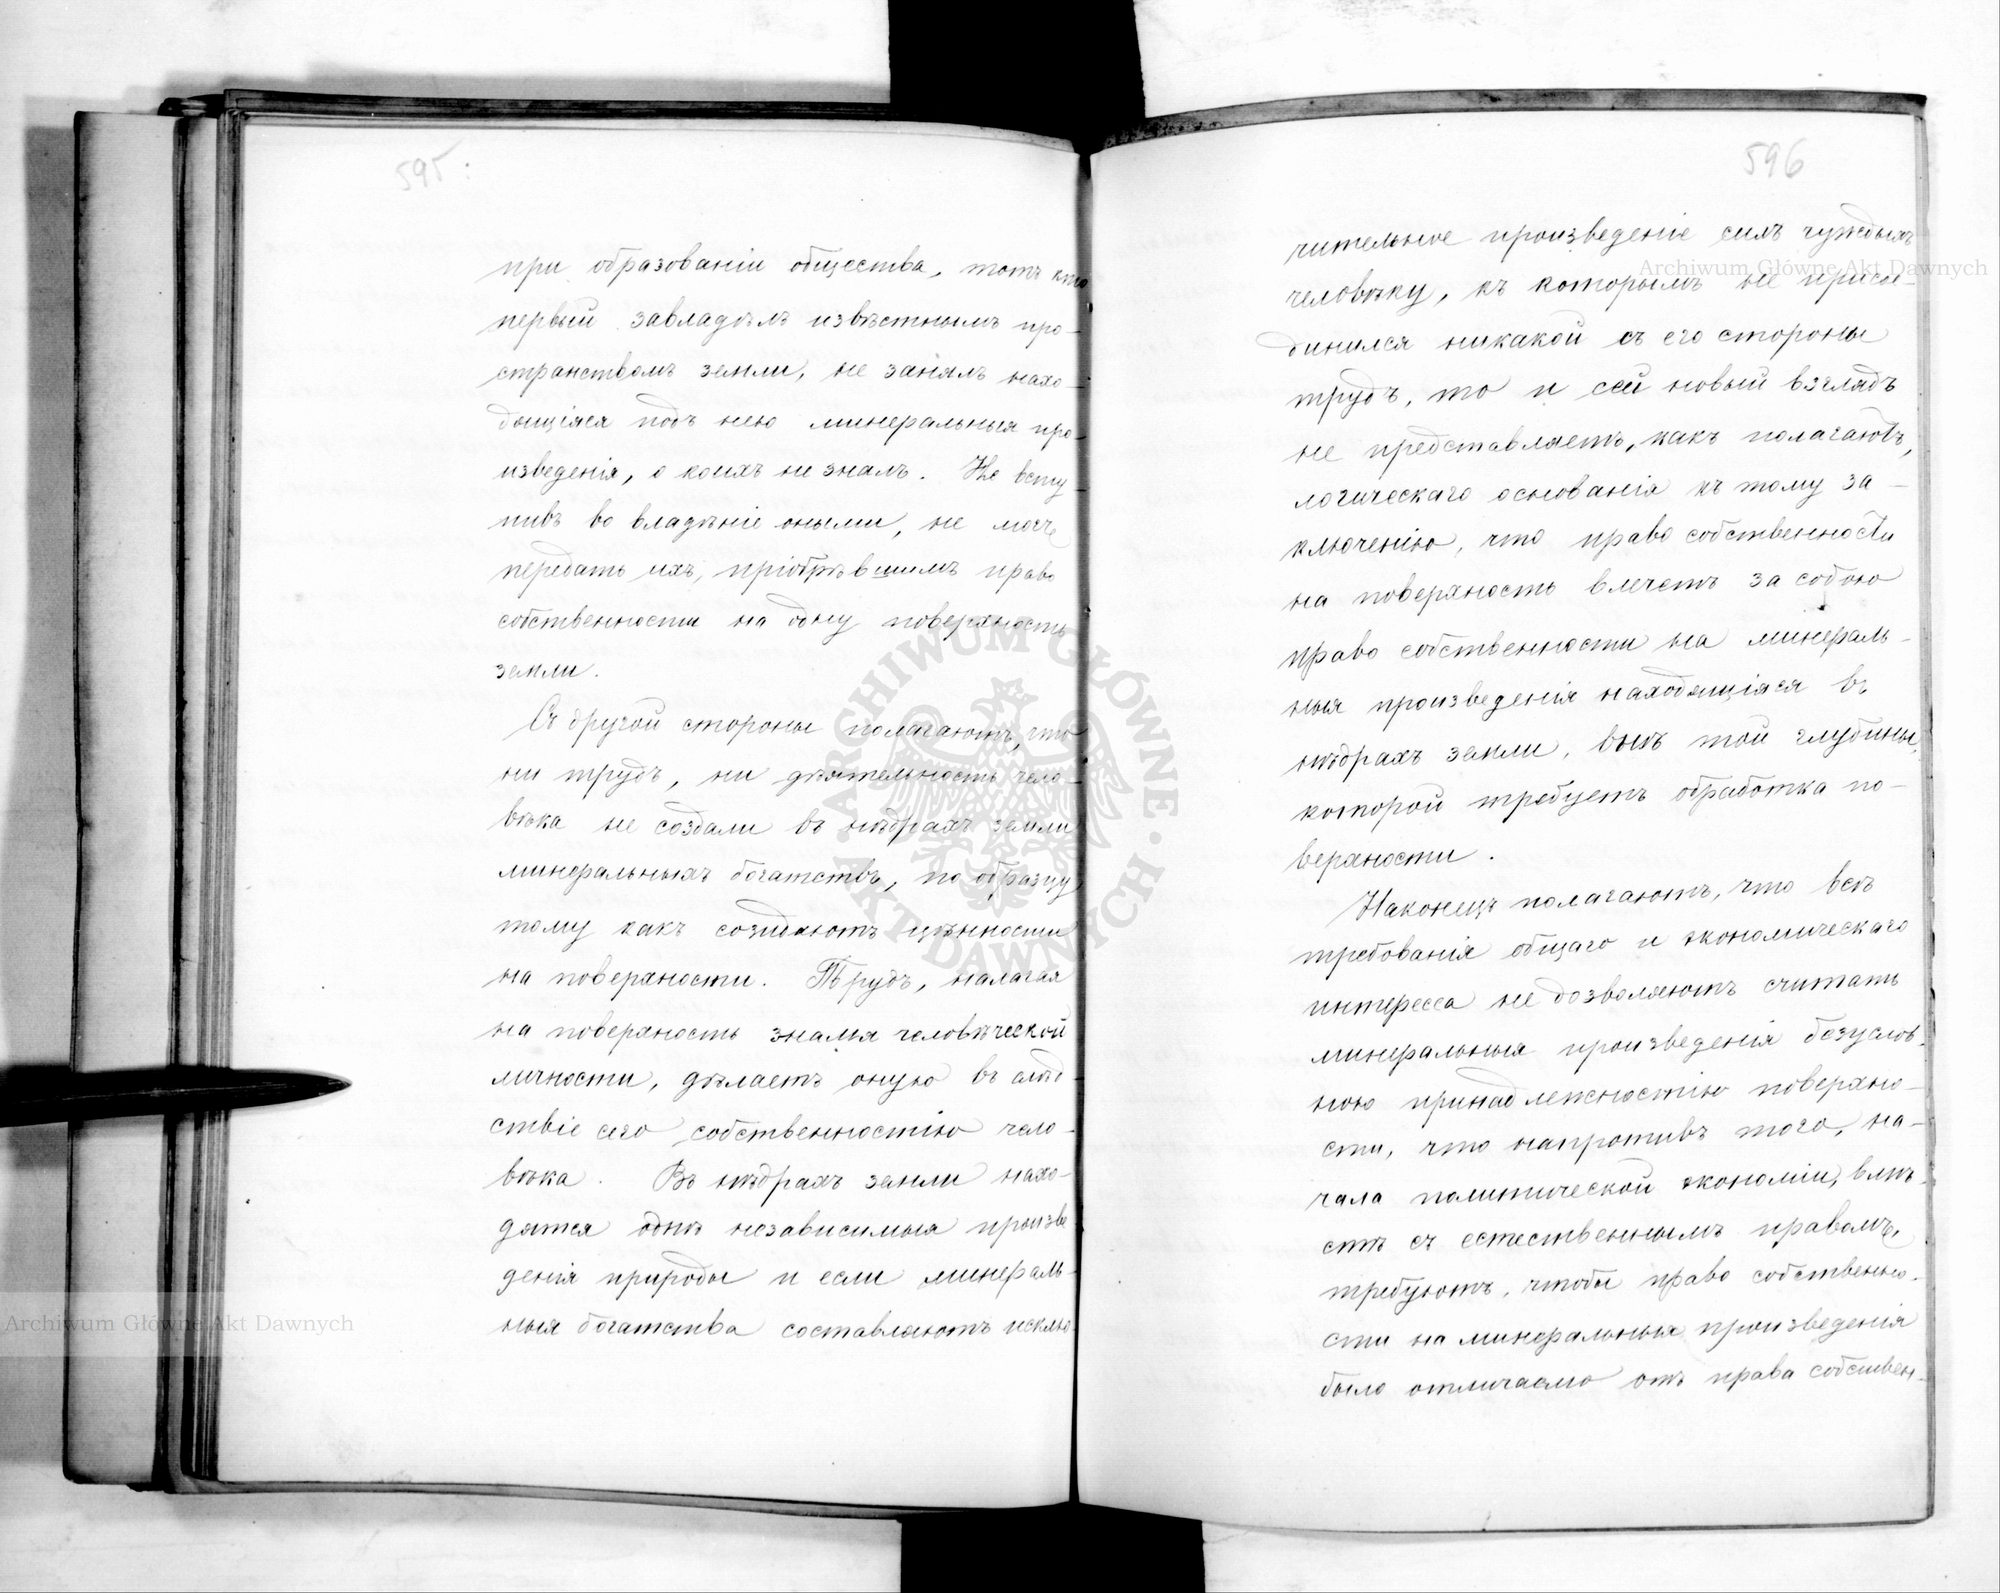 595.
при образованіи общества, тотъ кто
первый завладѣлъ извѣстнымъ про-
странствомъ земли, не занялъ нахо-
дящіяся подъ нею минеральныя про-
изведенія, о коихъ не зналъ. Не всту-
пивъ во владѣніе оными, не могъ
передать ихъ, пріобрѣвшимъ право
собственности на одну поверхность
земли.
Съ другой стороны полагаютъ, что
ни трудъ, ни дѣятельность чело-
вѣка не создали въ нѣдрахъ земли
минеральныхъ богатствъ, по образцу
тому какъ созидаютъ цѣнности
на поверхности. Трудъ, налагая
на поверхность знамя человѣческой
личности, дѣлаетъ оную въ слѣд-
ствіе сего собственностію чело-
вѣка. Въ нѣдрахъ земли нахо-
дятся однѣ независимыя произве
денія природы и если минераль-
ныя богатства составляютъ исклю
596
чительное произведеніе силъ чуждыхъ
человѣку, къ которымъ не присое-
динился никакой съ его стороны
трудъ, то и сей новый взглядъ
не представляетъ, какъ полагаютъ,
логическаго основанія къ тому за-
ключенію, что право собственности
на поверхность влечетъ за собою
право собственности на минераль-
ныя произведенія находящіяся въ
нѣдрахъ земли, внѣ той глубины,
которой требуетъ обработка по-
верхности.
Наконецъ полагаютъ, что всѣ
требованія общаго и экономическаго
интересса не дозволяютъ считать
минеральныя произведенія безуслов-
ною принадлежностію поверхно-
сти, что напротивъ того, на-
чала политической экономіи, вмѣ-
стѣ съ естественнымъ правомъ,
требуютъ, чтобы право собственно-
сти на минеральныя произведенія
было отличаемо отъ права собствен-
ARCHIWUM GŁÓWNE AKT DAWNYCH
Archiwum Główne Akt Dawnych
Archiwum Główne Akt Dawnych